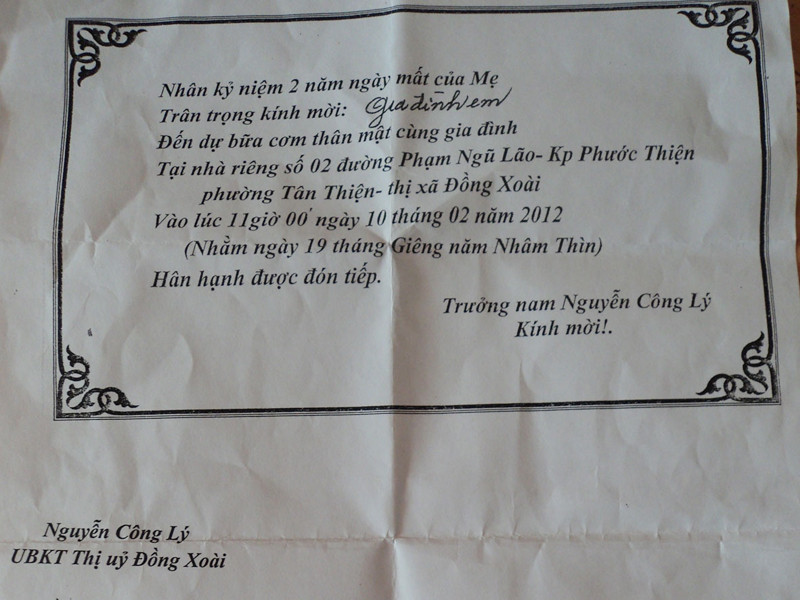 Nhân kỷ niệm 2 năm ngày mất của Mẹ
Trân trọng kính mời: Gia đình em
Đến dự bữa cơm thân mật cùng gia đình
Tại nhà riêng số 02 đường Phạm Ngũ Lão- Kp Phước Thiện
phường Tân Thiện- thị xã Đồng Xoài
Vào lúc 11giờ 00' ngày 10 tháng 02 năm 2012
(Nhằm ngày 19 tháng Giêng năm Nhâm Thìn)
Hân hạnh được đón tiếp.
Trưởng nam Nguyễn Công Lý
Kính mời!.
Nguyễn Công Lý
UBKT Thị uỷ Đồng Xoài